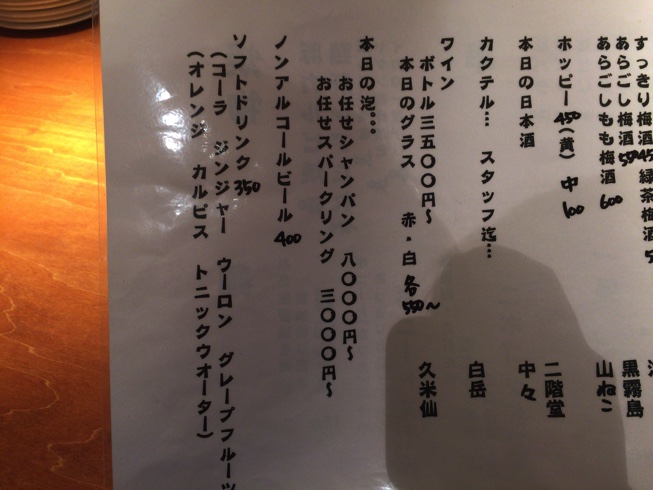 すっきり梅酒45 緑茶梅酒5
あらごし梅酒550
あらごしもも梅酒 600
ホッピー450(黄) 中100
本日の日本酒
カクテル… スタッフ迄…
ワイン
ボトル三五〇〇円~
本日のグラス 赤・白 各550~
本日の泡。。。
お任せシャンパン 八〇〇〇円~
お任せスパークリング 三〇〇〇円~
ノンアルコールビール 400
ソフトドリンク350
(コーラ ジンジャー ウーロン グレープフルーツ
(オレンジ カルピス トニックウオーター)
黒霧島
山ねこ
二階堂
中々
白岳
久米仙